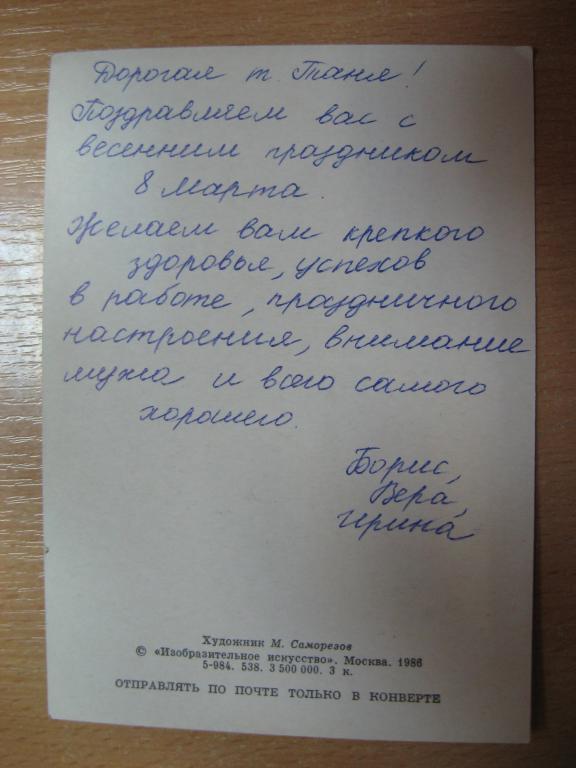 Дорогая т. Таня!
Поздравляем вас с
весенним праздником
8 марта.
Желаем вам крепкого
здоровья, успехов
в работе, праздничного
настроения, внимание
мужа и всего самого
хорошего.
Борис,
Вера,
Ирина
Художник М. Саморезов
© «Изобразительное искусство». Москва. 1986
5-984. 538. 3 500 000. 3 к.
ОТПРАВЛЯТЬ ПО ПОЧТЕ ТОЛЬКО В КОНВЕРТЕ